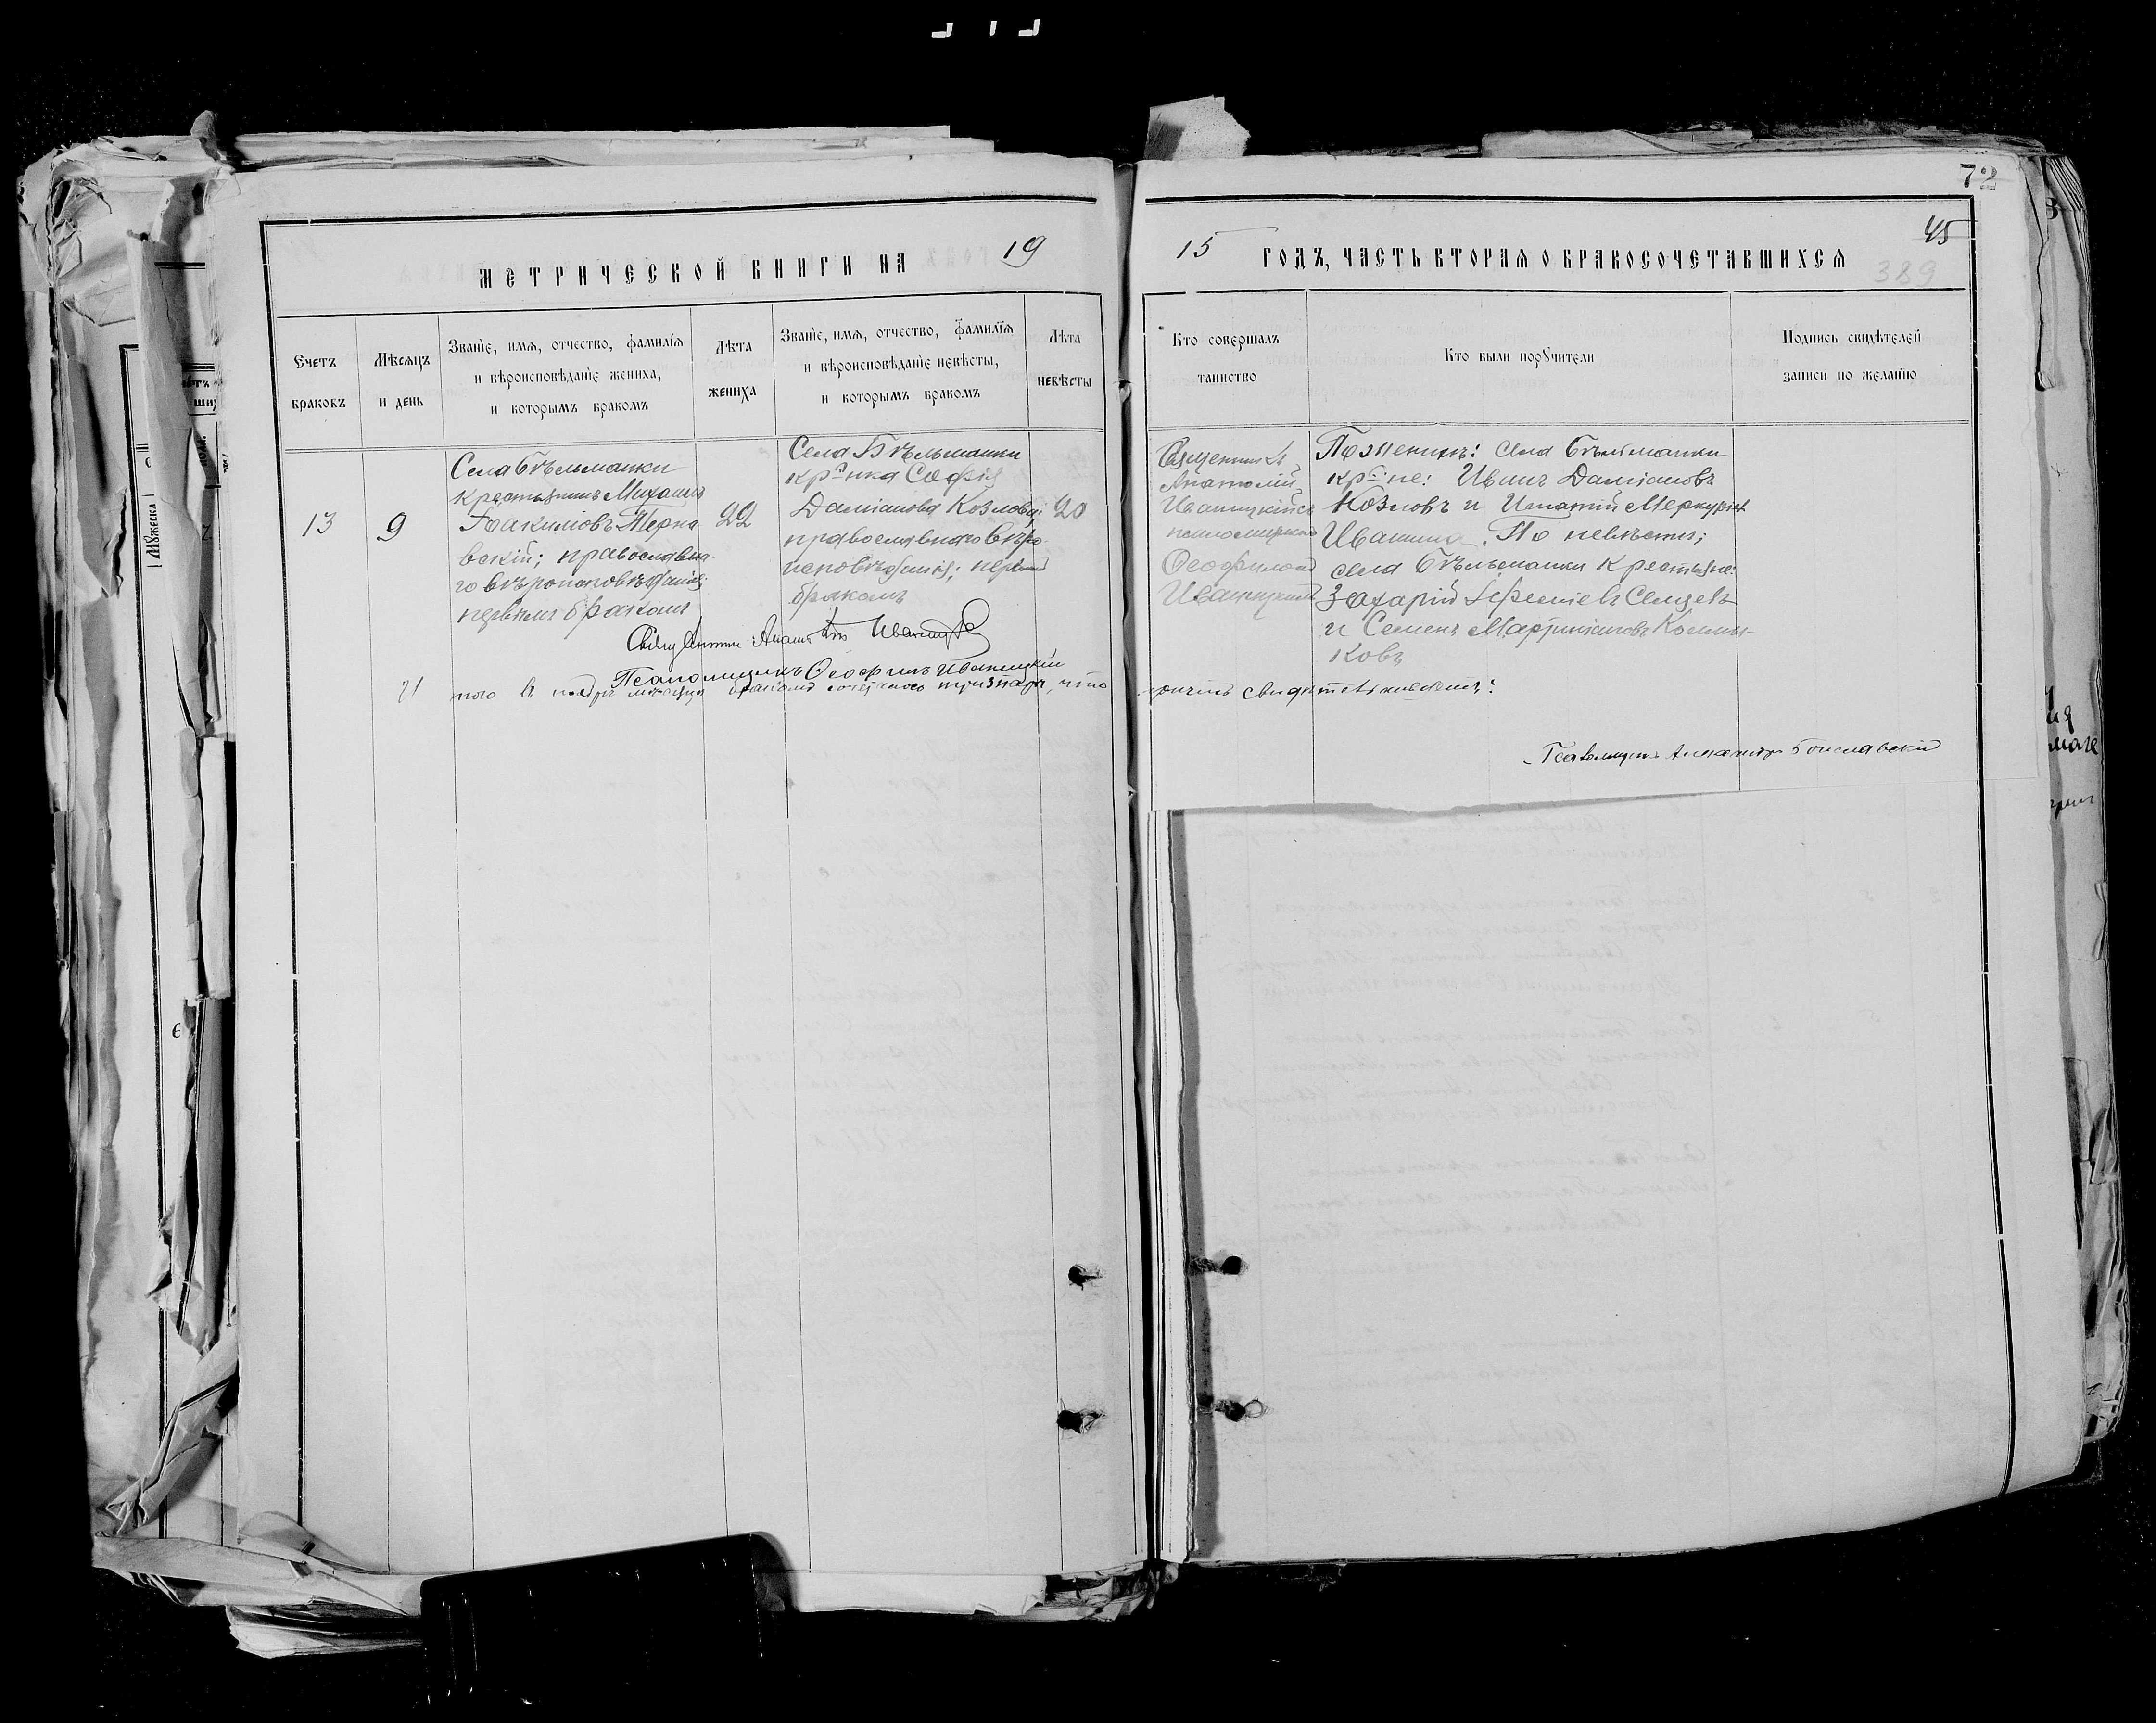 72
45
389
МЕТРИЧЕСКОЙ КНИГИ НА 19
15 ГОДЪ, ЧАСТЬ ВТОРАЯ О БРАКОСОЧЕТАВШИХСЯ
Счетъ
браковъ
Мѣсяцъ
и день
Званіе, имя, отчество, фамилія
и вѣроисповѣданіе жениха,
и которымъ бракомъ
Лѣта
жениха
Званіе, имя, отчество, фамилія
и вѣроисповѣданіе невѣсты,
и которымъ бракомъ
Лѣта
невѣсты
Кто совершалъ
таинство
Кто были поручители
Подпись свидѣтелей
записи по желанію
13
9
Села Бѣльманки
крестьянинъ Михаилъ
Іоакимовъ Терно
вскій; православна
го вѣроисповѣданія;
первымъ бракомъ
22
Села Бѣльманки
кр–нка Софія
Даміанова Козлова;
православнаго вѣро
исповѣданія; первымъ
бракомъ
20
Священникъ
Анатолій
Иваницкій съ
псаломщикомъ
Ѳеофиломъ
Иваницкимъ
По женихѣ: села Бѣльманки
кр–не: Иванъ Даміановъ
Козловъ и Игнатій Меркурiевъ
Ивашина. По невѣстѣ;
села Бѣльманки крестьяне:
Захарій
и Семенъ Мартиніановъ
ковъ
Священникъ Анатолій Иваницкій
Псаломщикъ Ѳеофилъ Иваницкій
И того въ ноябрѣ мѣсяцѣ бракомъ сочеталось тринадцать, что
свидѣтельствуемъ:
Псаломщикъ Александръ Богуславскій